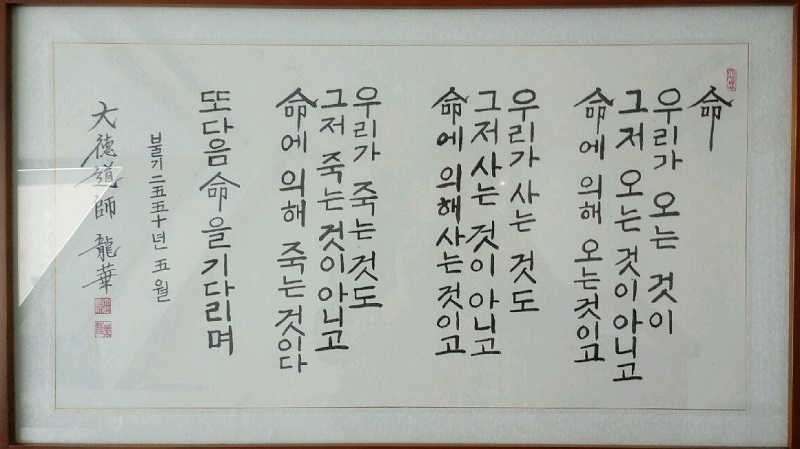 命
우리가 오는 것이
그저 오는 것이 아니고
命에 의해 오는것이고
우리가 사는 것도
그저 사는 것이 아니고
命에 의해 사는것이고
우리가 죽는것도
그저 죽는것이아니고
命에 의해 죽는것이다
또다음 命을기다리며
불기 二五五十년 五월
大德道師 龍華